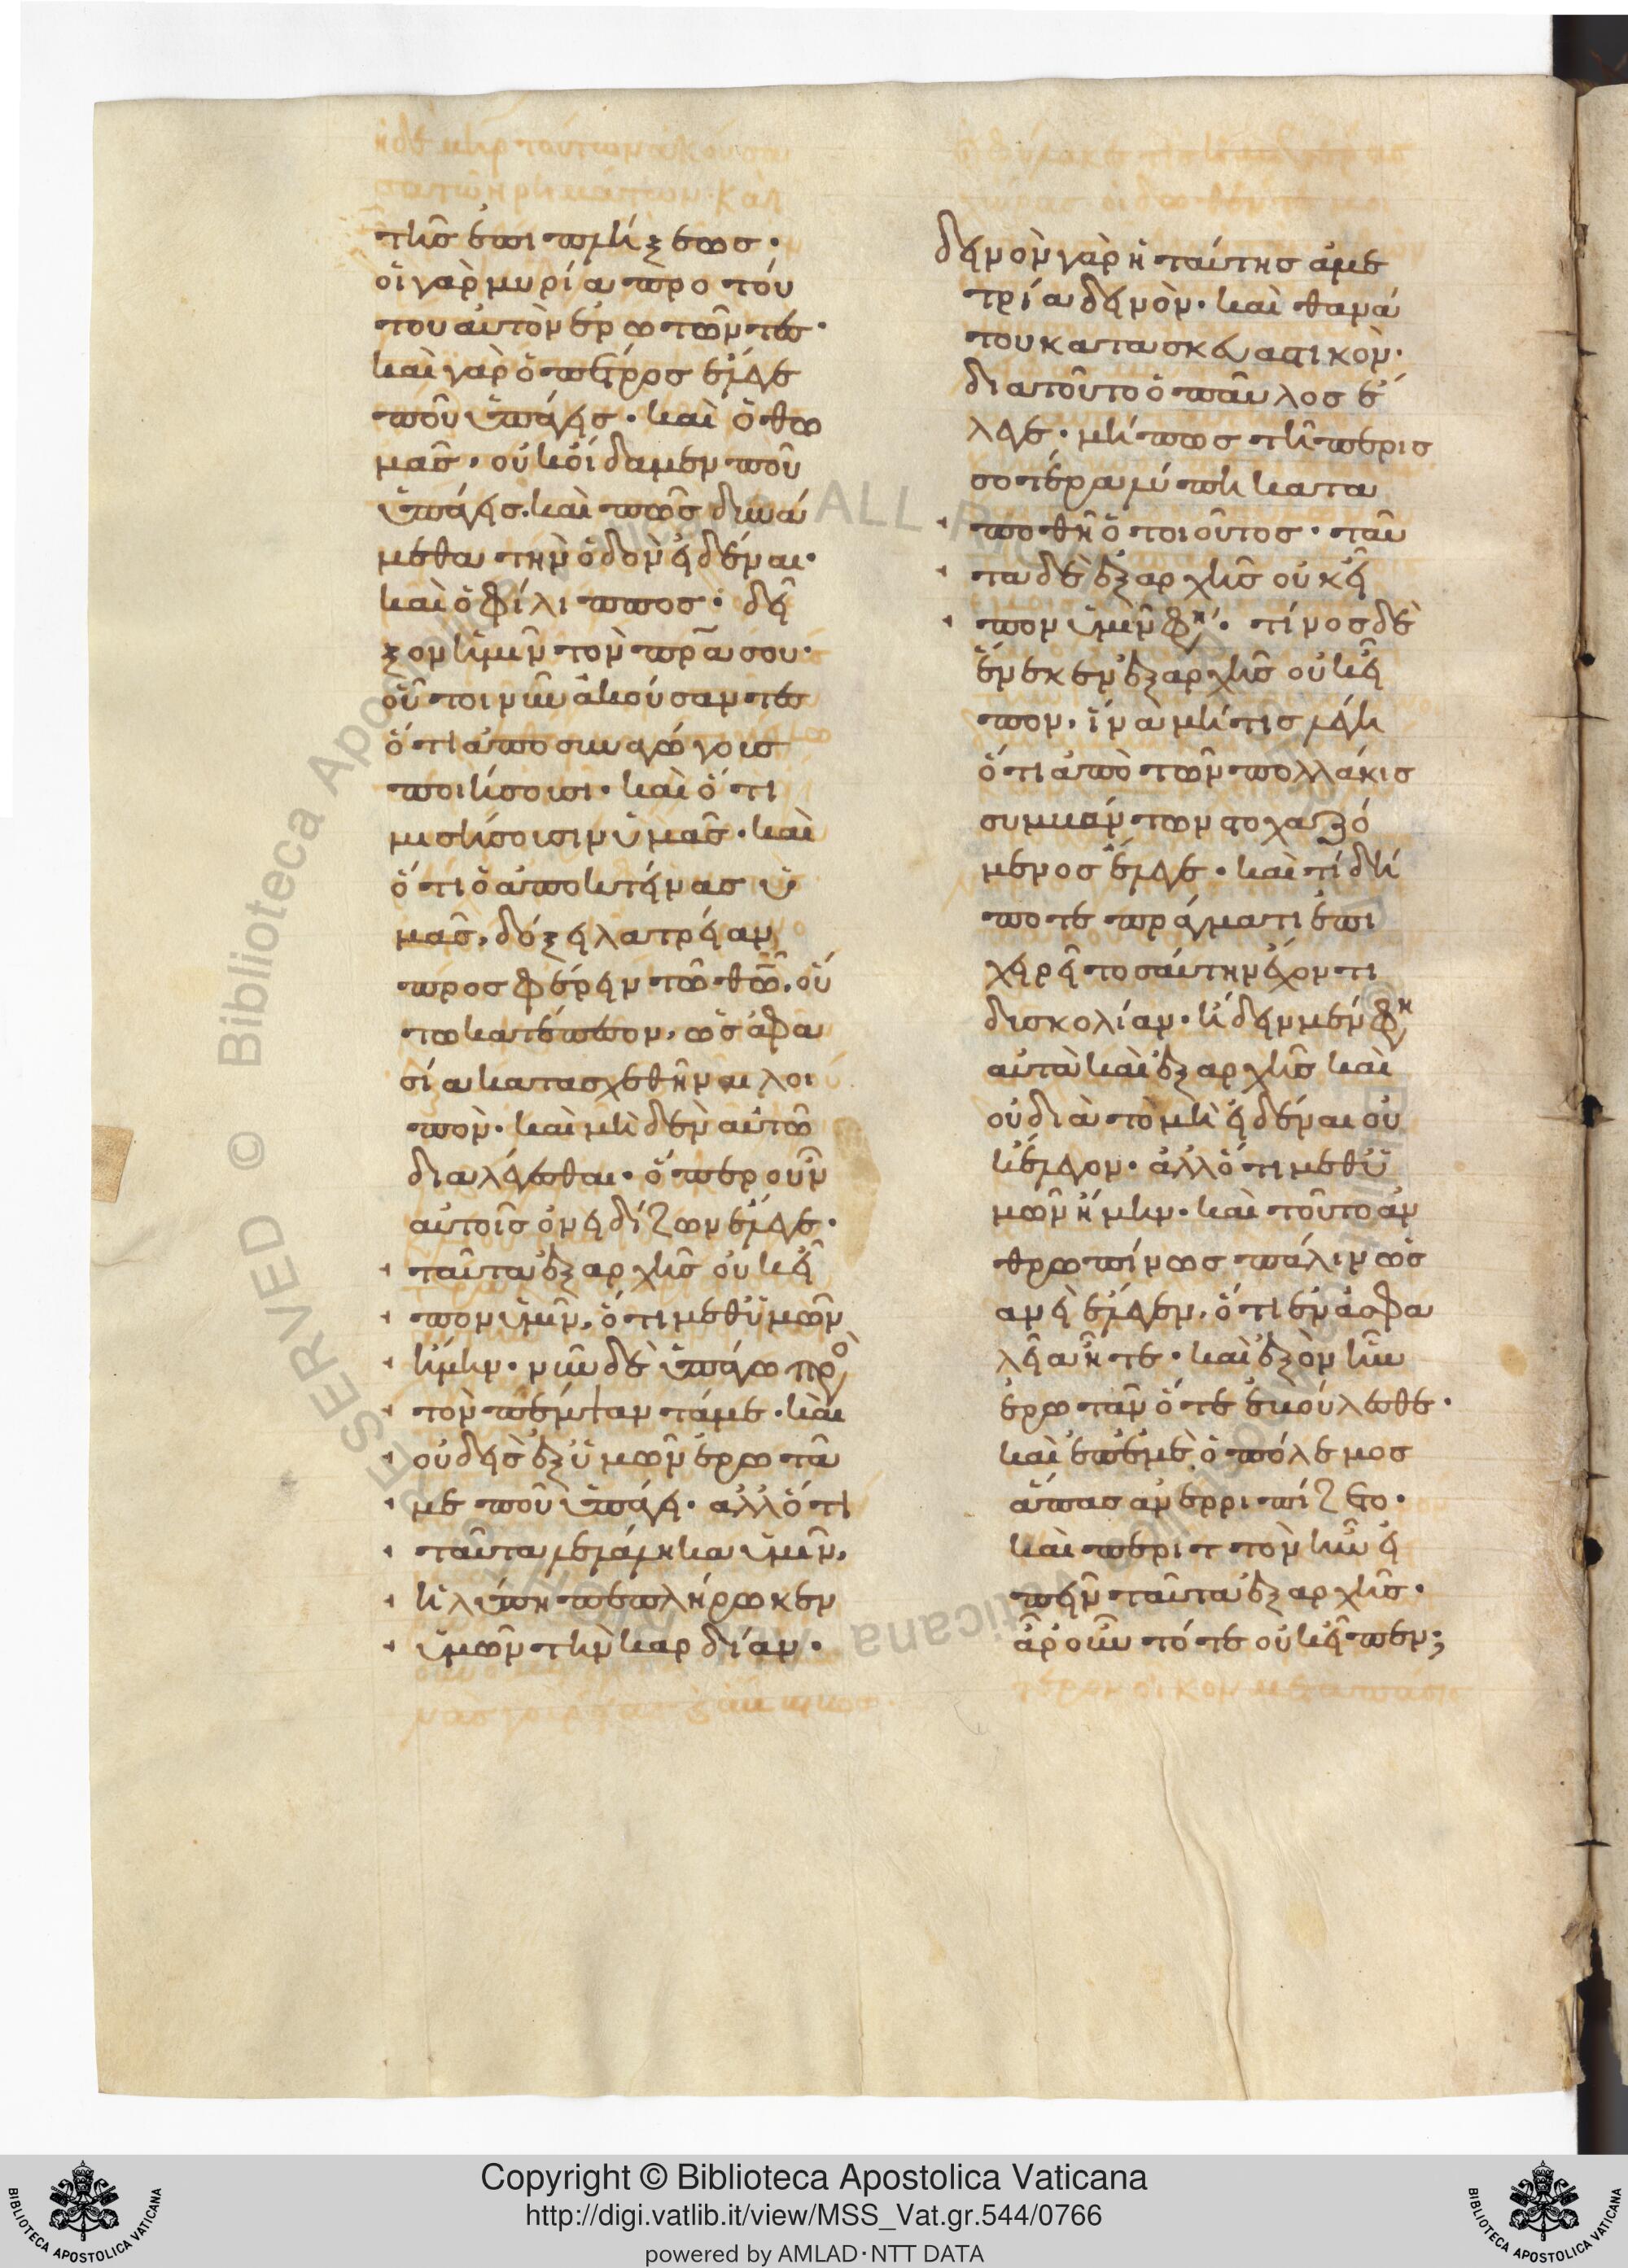 τῆς ἐπιπλήξεως·
οἱ γὰρ μυρία πρὸ τού
του αὐτὸν ἐρωτῶντες·
καὶ γὰρ ὁ πέτρος ἔλεγε
ποῦ ὑπάγεις· καὶ ὁ θω
μᾶς· οὐκ οἴδαμεν ποῦ
ὑπάγεις· καὶ πῶς δυνά
μεθα τὴν ὁδὸν εἰδέναι·
καὶ ὁ φίλιππος· δεῖ
ξον ἡμῖν τὸν πρα σου·
οὗτοι νῦν ἀκούσαντες
ὅτι ἀποσυναγώγους
ποιήσουσι· καὶ ὅτι
μισήσουσιν ὑμᾶς· καὶ
ὅτι ὁ ἀποκτείνας ὑ
μᾶς, δόξει λατρείαν
προσφέρειν τῶ θῶ, οὕ
τω κατέπιπτον, ὡς ἀφα
σία κατασχεθῆναι λοι
πὸν· καὶ μηδὲν αὐτῶ
διαλέγεσθαι· ὅπερ οὖν
αὐτοῖς ὀνειδίζων ἔλεγε·
ταῦτα ἐξαρχῆς οὐκ εἶ
πον ὑμῖν, ὅτι μεθ ὑμῶν
ἤμην· νῦν δὲ ὑπάγω πρὸ
τὸν πέμψαντά με· καὶ
οὐδεὶς ἐξ ὑμῶν ἐρωτᾶ
με ποῦ ὑπάγει· ἀλλ ὅτι
ταῦτα λελάληκα ὑμῖν,
ἡ λύπη πεπλήρωκεν
ὑμῶν τὴν καρδίαν·
δεινὸν γὰρ ἡ ταύτης ἀμε
τρία δεινὸν· καὶ θανά
του κατασκευαστικὸν·
διατοῦτο ὁ παῦλος ἔ
λεγε· μήπως τῆ περισ
σοτέρα λύπη κατα
ποθῆ ὁ τοιοῦτος· ταῦ
τα δὲ ἐξαρχῆς οὐκ εἶ
πον ὑμῖν φη· τίνος δὲ
ἕνεκεν ἐξαρχῆς οὐκ εἶ
πον, ἵνα μήτις λέγη
ὅτι ἀπὸ τῶν πολλάκις
συμβάντων στοχαζό
μενος ἔλεγε· καὶ τί δή
ποτε πράγματι ἐπι
χειρεῖ τοσαύτην ἔχοντι
δυσκολίαν· ἤδειν μέν φη
αὐτὰ καὶ ἐξαρχῆς καὶ
οὐ διὰ τὸ μὴ εἰδέναι οὐ
κ ἔλεγον· ἀλλ ὅτι μεθ ὑ
μῶν ἤμην· καὶ τοῦτο ἀν
θρωπίνως πάλιν ὡς
ανεὶ ἔλεγεν, ὅτι ἐν ἀσφα
λεία ἦτε· καὶ ἐξὸν ἦν
ἐρωτᾶν ὅτε ἐβούλεσθε·
καὶ ἐπ ἐμὲ ὁ πόλεμος
ἅπας ἀνερριπίζετο·
καὶ περιττὸν ἦν εἰ
πεῖν ταῦτα ἐξαρχῆς·
ἆρ οὖν τότε οὐκ εἶπεν;
Copyright © Biblioteca Apostolica Vaticana
http://digi.vatlib.it/view/MSS_Vat.gr.544/0766
powered by AMLAD·NTT DATA